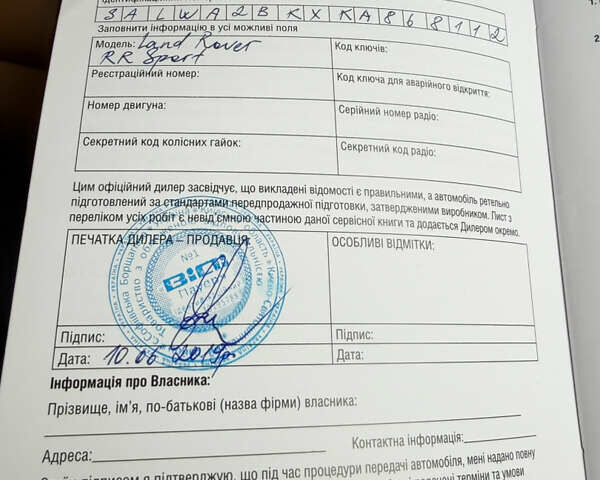 SALWA2BKXKA868112
Заповнити інформацію в усі можливі поля
Модель: Land Rover
RR Sport
Код ключів:
Реєстраційний номер:
Код ключа для аварійного відкриття:
Номер двигуна:
Серійний номер радіо:
Секретний код колісних гайок:
Секретний код радіо:
Цим офіційний дилер засвідчує, що викладені відомості є правильними, а автомобіль ретельно
підготовлений за стандартами передпродажної підготовки, затвердженими виробником. Лист з
переліком усіх робіт є невід ємною частиною даної сервісної книги та додається Дилером окремо.
ПЕЧАТКА ДИЛЕРА – ПРОДАВЦЯ:
ОСОБЛИВІ ВІДМІТКИ:
№1
ВіДі
Підпис:
Підпис:
Дата: 10.06.2019р.
Дата:
Інформація про Власника:
Прізвище, ім’я, по-батькові (назва фірми) власника:
Адреса:
Контактна інформація:
підписом я підтверджую, що під час процедури передачі автомобіля, мені надано повну
терміни та умови